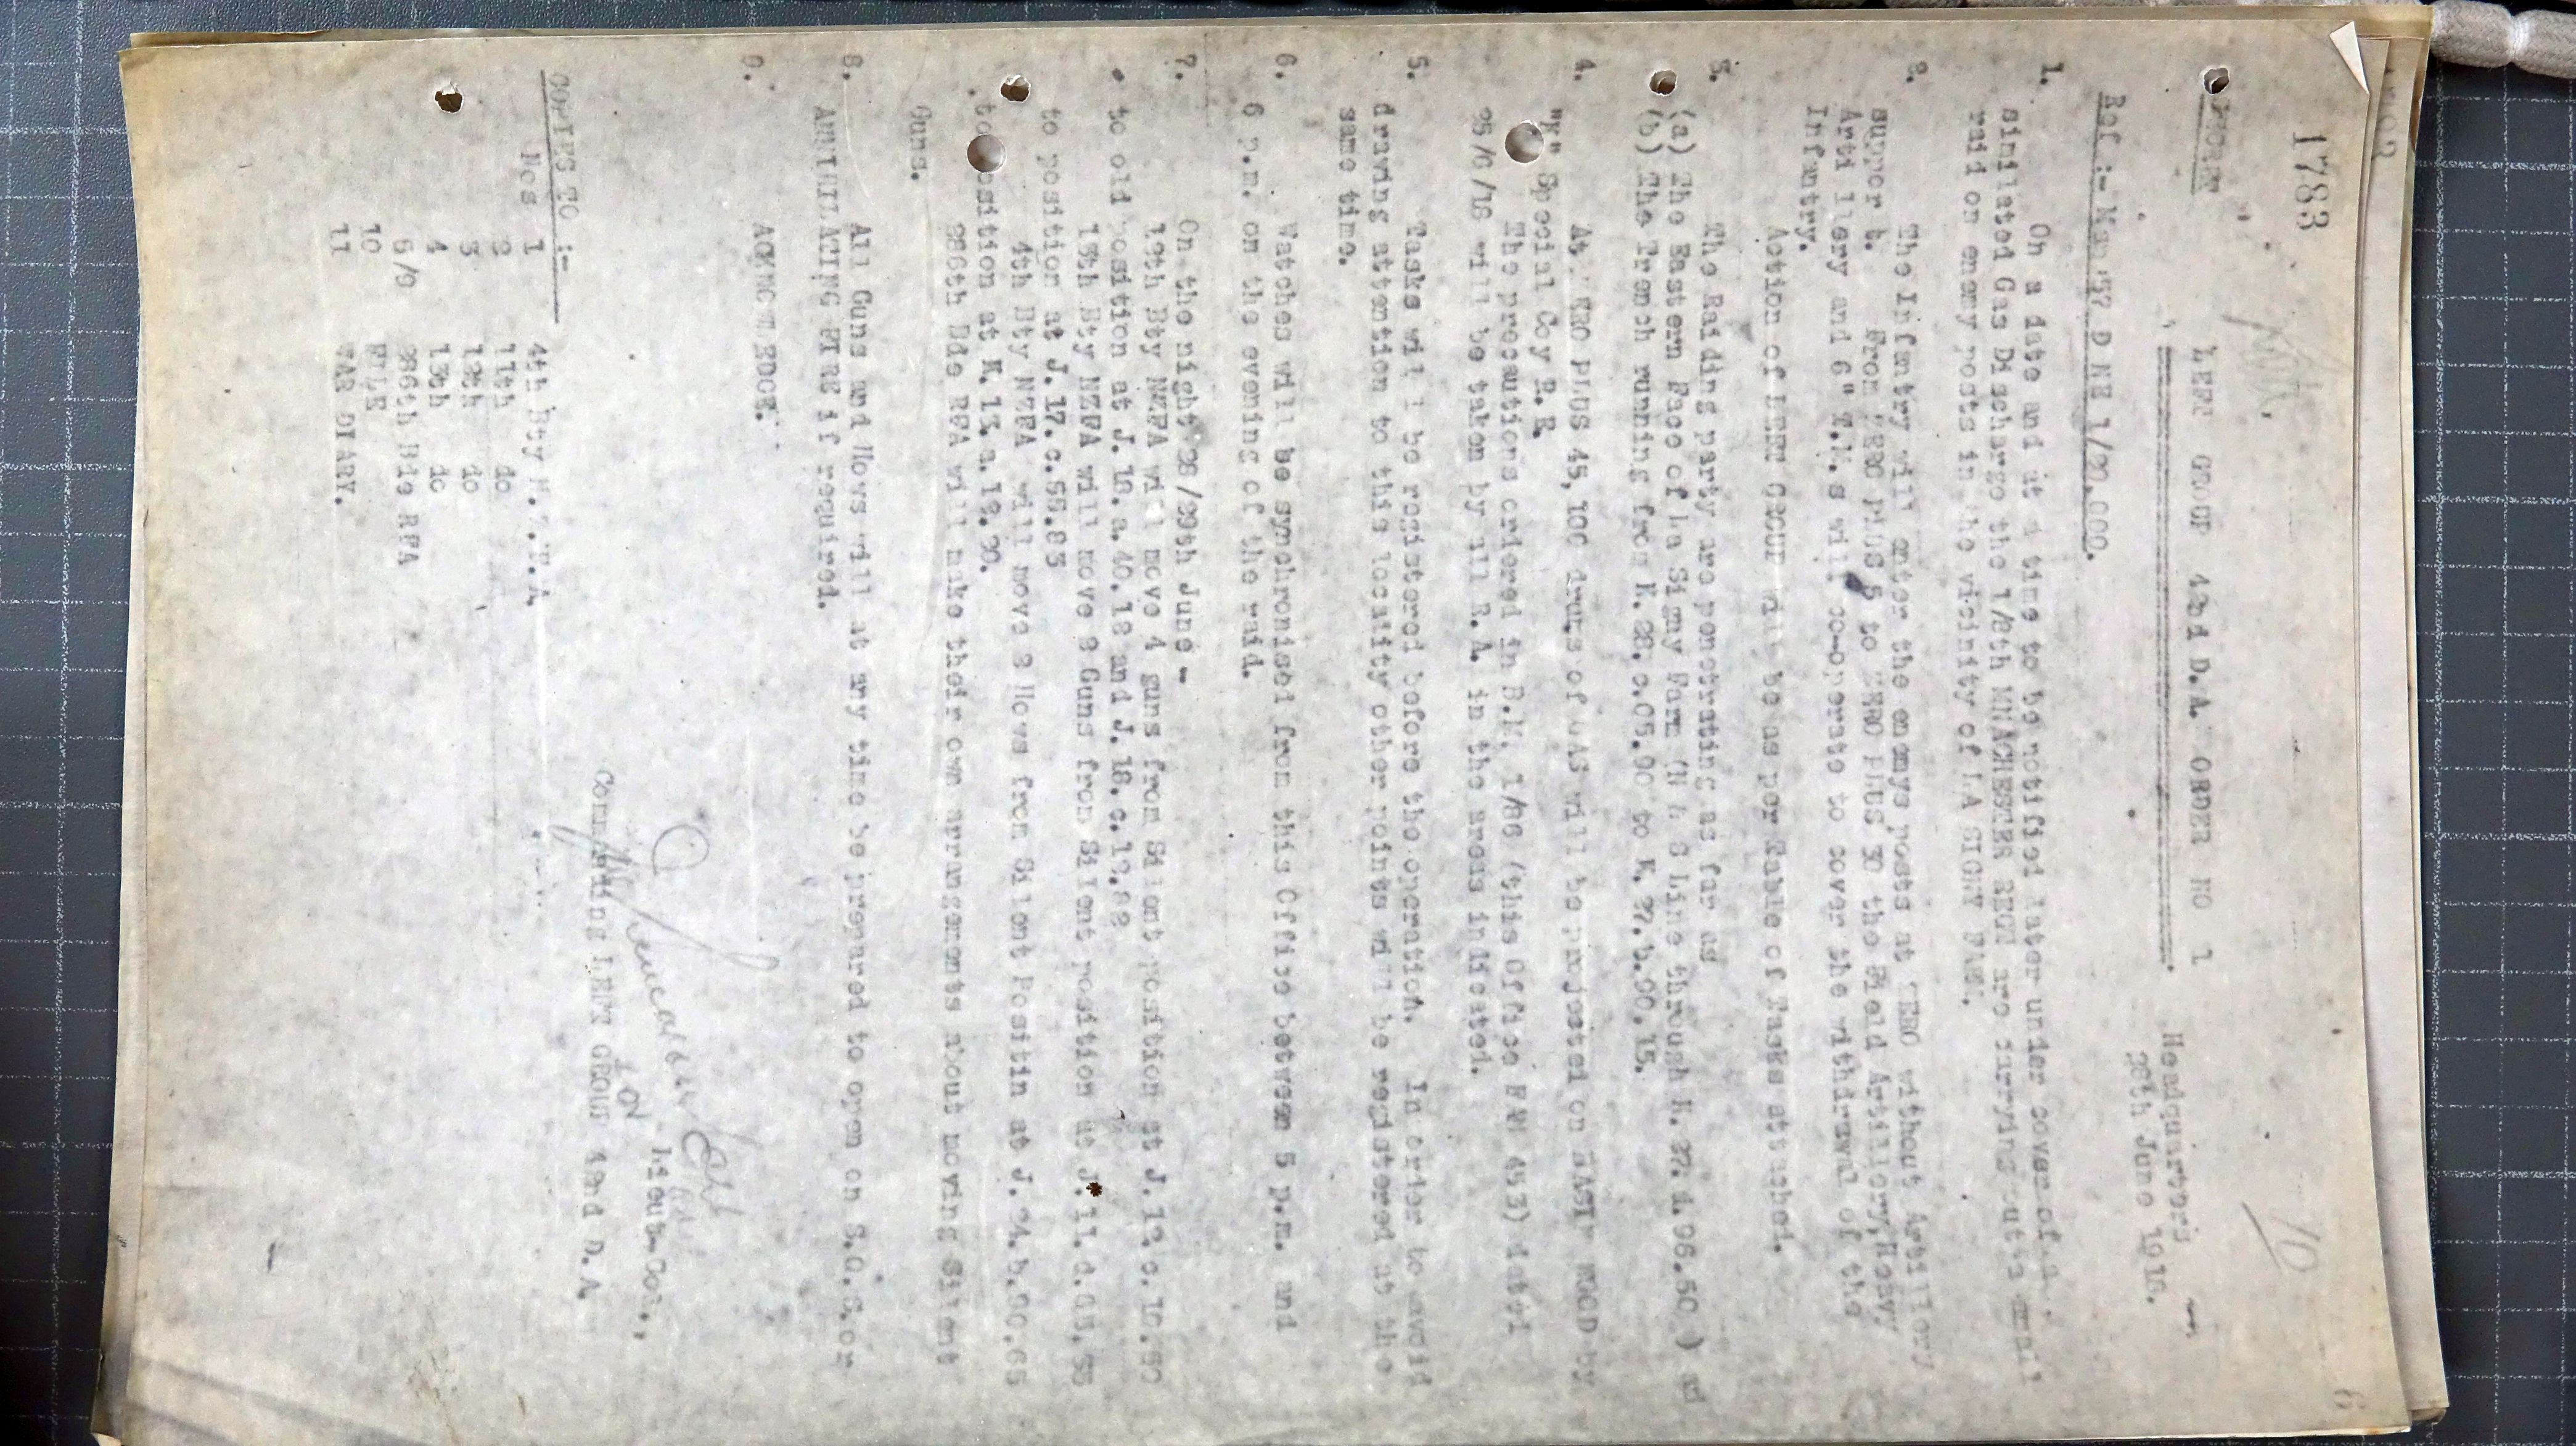 1783
10
SECRET
LEFT GROUP 42nd D.A. ORDER NO 1
Headquarters
28th June 1918.
Ref :- Map 57 D NE 1/20,000.
1. On a date and at a time to be notified later under cover of a
similated Gas Discharge the 1/8th MNACHESTER REGT are carrying out a small
raid on enemy posts in the vicinity of LA SIGNY FARM.
2. The Infantry will enter the enemys posts at ZERO without Artillery
support. From ZERO PLUS 5 to ZERO PLUS 30 the Field Artillery, Heavy
Artillery and 6" T.M.s will co-operate to cover the withdrawal of the
Infantry.
Action of LEFT GROUP will be as per Table of Tasks attached.
3. The Raiding party are penetrating as far as
(a) The Eastern Face of La Signy Farm (N & S Line through K. 27. d. 96.50 ) and
(b) The Trench running from K. 28. c.05.90 to K. 27.b.90.15.
4. At ZERO PLUS 45, 100 drums of GAS will be projected on BASIN WOOD by
"K" Special Coy R.E.
The precautions ordered in B.M. 1/86 (this Office 453) dated
25/6/18 will be taken by all R.A. in the areas indicated.
5. Tasks will be registered before the operation. In order to avoid
drawing attention to this locality other points will be registered at the
same time.
6. Watches will be synchronised from this Office between 5 p.m. and
6 p.m. on the evening of the raid.
7. On the night 28/29th June -
12th Bty NZFA will move 4 guns from Silent position at J. 12. c. 10.80
to old position at J. 18. a. 40.18 and J. 18. c. 12.82
13th Bty NZFA will move 2 Guns from Silent position at J. 11. d. 05.35
to position at J. 17. c.55.83
4th Bty NZFA will move 2 Hows from Silent Positin at J. 24. b. 90.65
to position at K. 13. a. 12.20.
286th Bde RFA will make their own arrangements about moving Silent
Guns.
8. All Guns and Hows will at any time be prepared to open on S.O.S. or
ANNIHILATING FIRE if required.
9. ACKNOWLEDGE.
Lieut-Col.,
Commanding LEFT GROUP 42nd D.A.
COPIES TO :-
Nos 1 4th Bty N.Z.F.A.
2 11th do
3 12th do
4 13th do
5/9 286th Bde RFA
10 FILE
11 WAR DIARY.